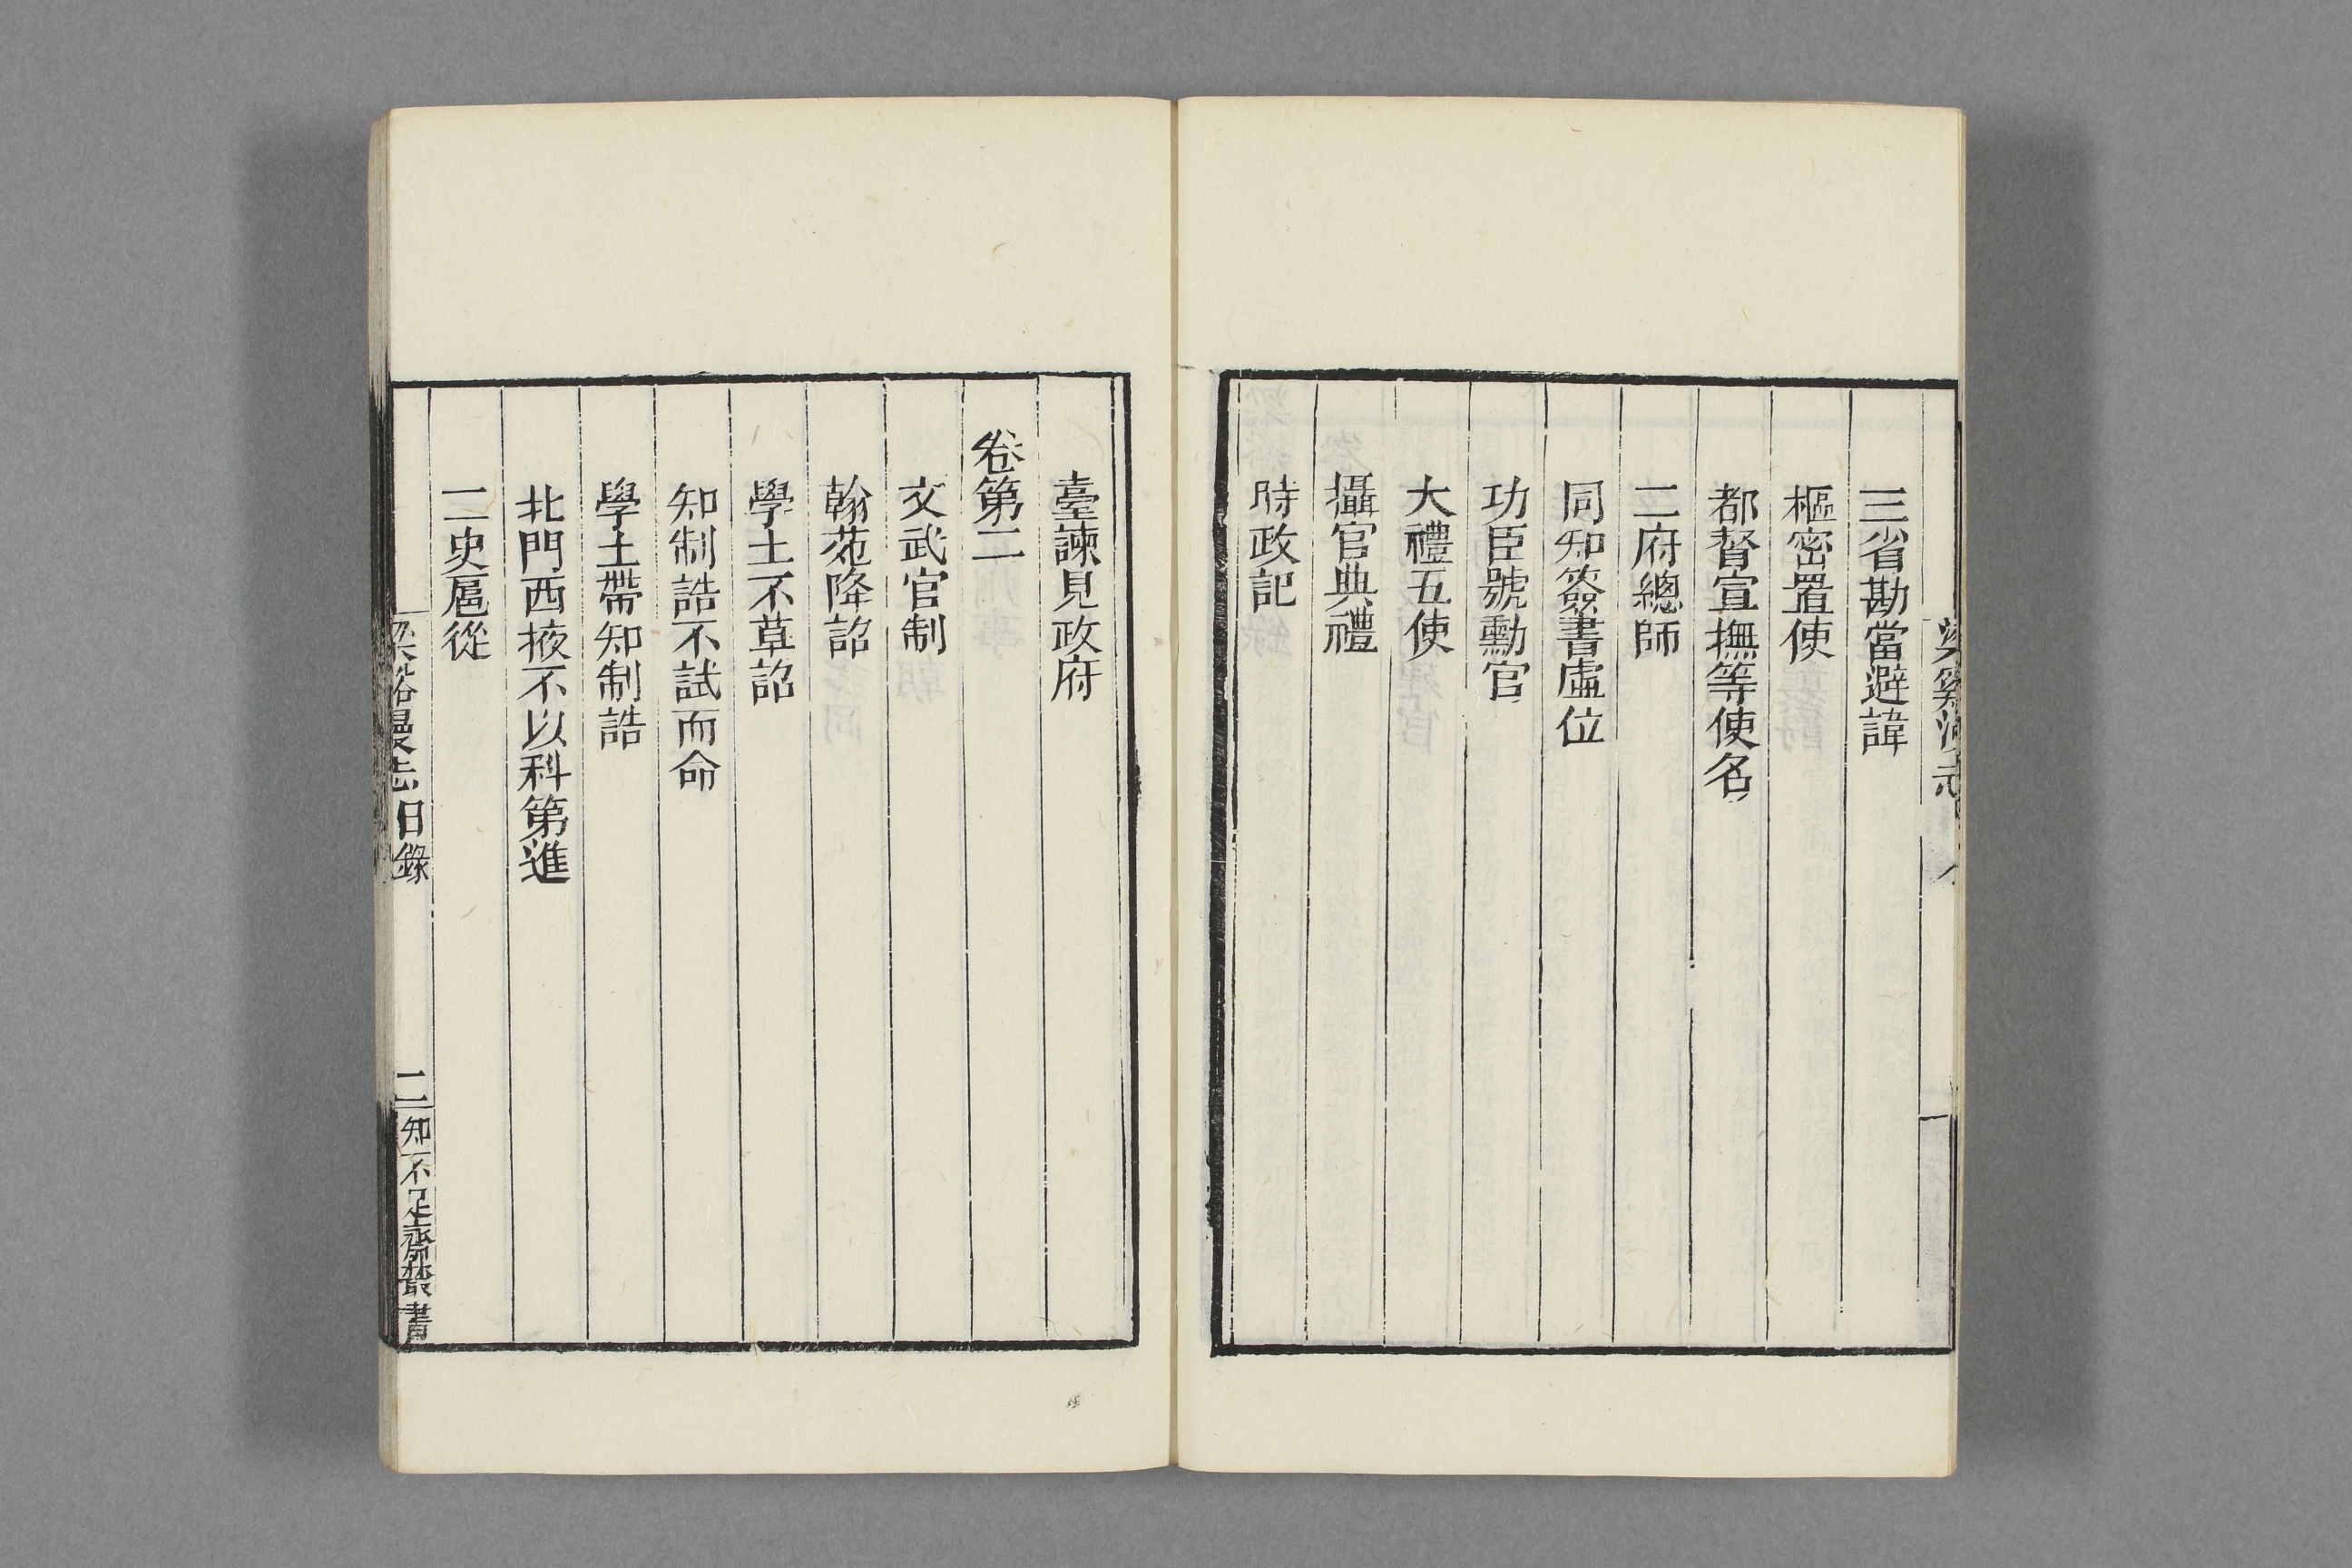 三省勘當避諱
樞密置使
都督宣撫等使名
二府總師
同知簽書虛位
功臣號勳官
大禮五使
攝官典禮
時政記
臺諫見政府
卷第二
文武官制
翰苑降詔
學士不草詔
知制誥不試而命
學士帶知制誥
北門西掖不以科第進
二史扈從
梁谿漫志目錄
二
知不足齋叢書